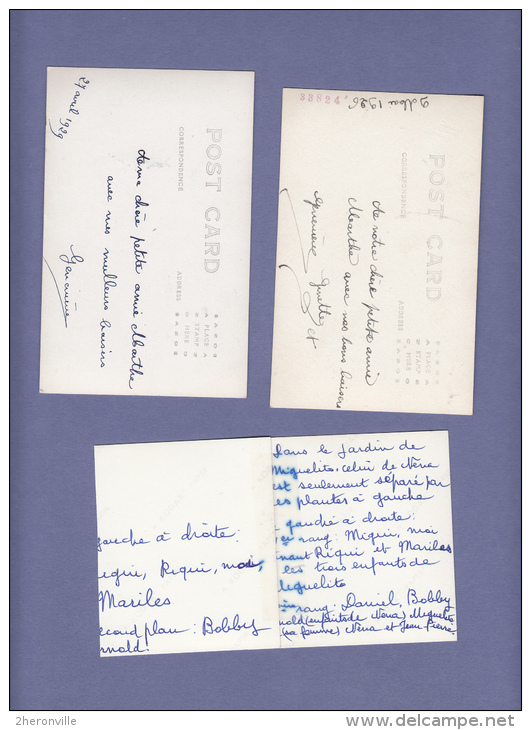 27 avril 1929
POST CARD
CORRESPONDENCE
ADDRESS
PLACE
STAMP
HERE
chère petite amie Marthe
avec mes meilleurs baisers
Geneviève
33824
1926
POST CARD
CORRESPONDENCE
ADDRESS
PLACE
STAMP
HERE
A notre chère petite amie
Marthe avec nos bons baisers
Geneviève et
gauche à droite:
equi, Riqui, moi,
Mariles
econd plan: Bobby
nold.
Dans le jardin de
Miguelito, celui de Nena
est seulement séparé par
es plantes à gauche
gauche à droite:
rang: Miqui, moi
nant Riqui et Mariles
les trois enfants de
Miguelito
rang: Daniel, Bobby
nold (enfants de Nena) Miguelito
(sa femme) Nena et Jean Pierre
2heronville
www.delcampe.net